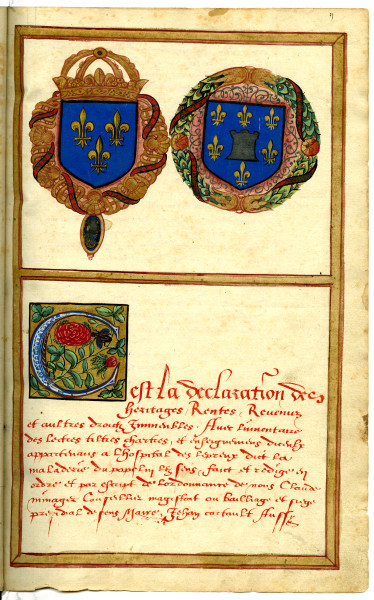 C'est la declaration des
heritages, Rentes, Revenuz
et aultres droitz Immeubles, Avec linventaire
des lectres tiltres chartres, et enseignemens diceulx
appartenans a lhospital des lepreux dict la
maladerie du popelin lez Sens, faict et redige en
ordre et par escript de lordonnance de nous Claude
minager Conseiller magistrat ou bailliage et siege
presidial de sens Maire, Jehan